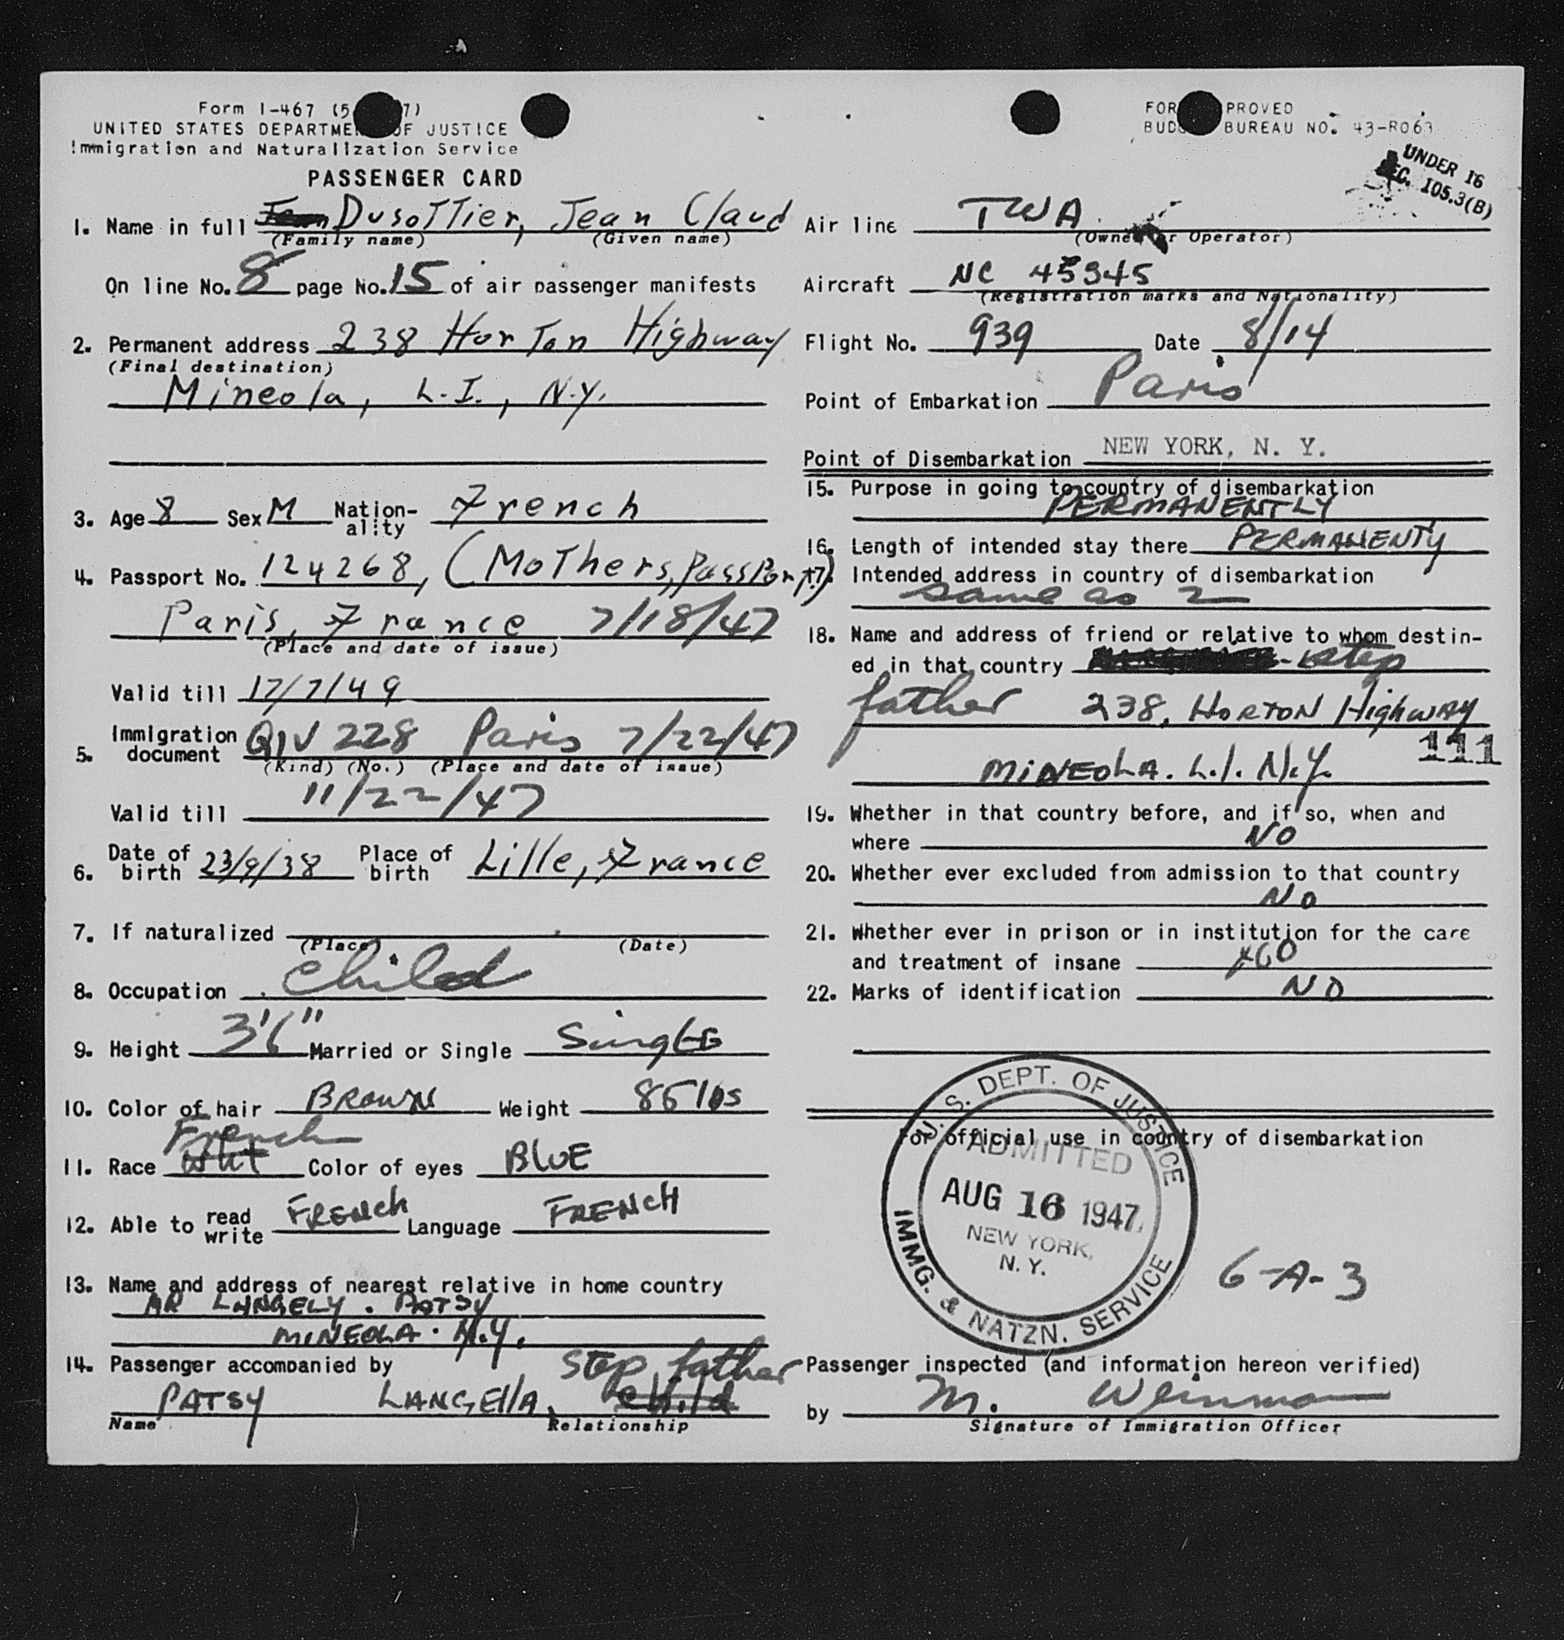 Form I-467 (5 7)
UNITED STATES DEPARTMENT OF JUSTICE
Immigration and Naturalization Service
PASSENGER CARD
1. Name in full Dusottier, Jean Claud
(Family name) (Given name)
On line No. 8 page No. 15 of air passenger manifests
2. Permanent address 238 Horton Highway
(Final destination)
Mineola, L.I., N.Y.
3. Age 8 Sex M Nation-ality French
4. Passport No. 124268, (Mothers, Passport)
Paris, France 7/18/47
(Place and date of issue)
Valid till 17/7/49
5. Immigration document QIV 228 Paris 7/22/47
(Kind) (No.) (Place and date of issue)
Valid till 11/22/47
6. Date of birth 23/9/38 Place of birth Lille, France
7. If naturalized
(Place) (Date)
8. Occupation child
9. Height 3'6" Married or Single Single
10. Color of hair Brown Weight 85 lbs
French
11. Race wht Color of eyes BLUE
12. Able to read write FRENCH Language FRENCH
13. Name and address of nearest relative in home country
MR LANGELY. PATSY
MINEOLA. N.Y.
14. Passenger accompanied by Step father
PATSY LANGELLA, child
Name Relationship
FOR PROVED
BUD BUREAU NO. 43-R063
UNDER 16
SEC. 105.3(B)
Air line TWA
(Owner or Operator)
Aircraft NC 45345
(Registration marks and Nationality)
Flight No. 939 Date 8/14
Point of Embarkation Paris
Point of Disembarkation NEW YORK, N. Y.
15. Purpose in going to country of disembarkation
PERMANENTLY
16. Length of intended stay there PERMANENTY
17. Intended address in country of disembarkation
same as 2
18. Name and address of friend or relative to whom destin-
ed in that country - step
father 238, HORTON Highway
111
MINEOLA. L.I. N.Y.
19. Whether in that country before, and if so, when and
where NO
20. Whether ever excluded from admission to that country
No
21. Whether ever in prison or in institution for the care
and treatment of insane NO
22. Marks of identification NO
For official use in country of disembarkation
U. S. DEPT. OF JUSTICE
ADMITTED
AUG 16 1947
NEW YORK,
N. Y.
IMMG. & NATZN. SERVICE
6-A-3
Passenger inspected (and information hereon verified)
by M. Weinman
Signature of Immigration Officer